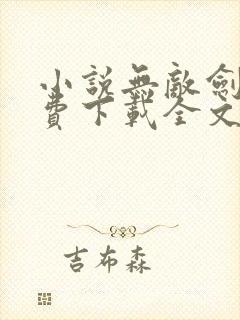 小說無敵劍
費下載全文
吉布森